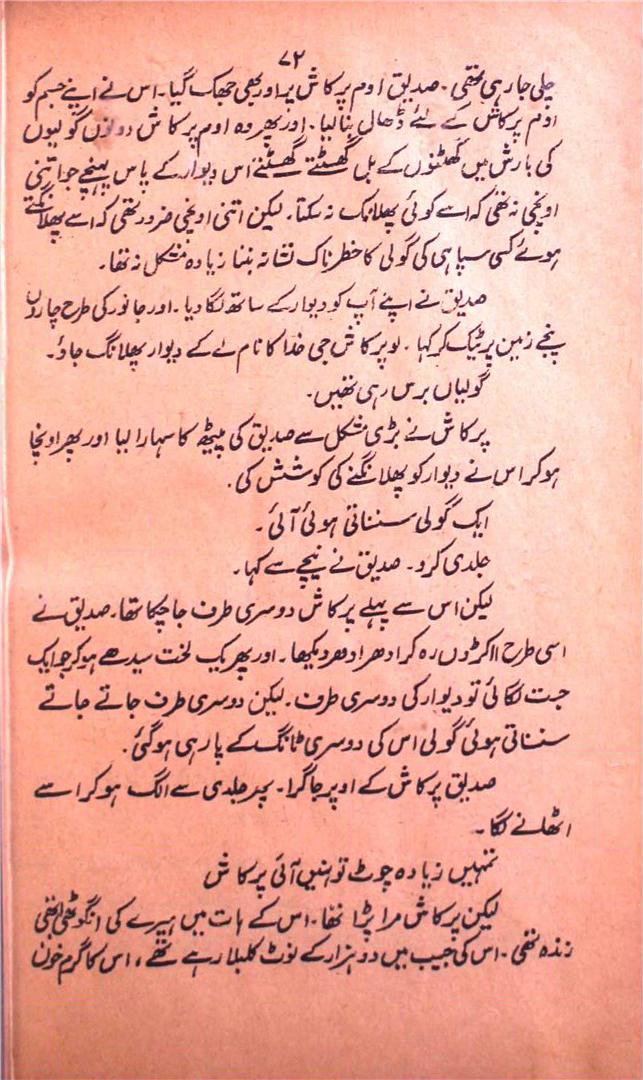 ۷۲
چلی جا رہی تھی۔ صدیق اوم پرکاش پر اور بھی جھک گیا۔ اس نے اپنے جسم کو
اوم پرکاش کے لئے ڈھال بنا لیا۔ اور پھر وہ اوم پرکاش دونوں گولیوں
کی بارش میں گھٹنوں کے بل گھسٹتے گھسٹتے اس دیوار کے پاس پہنچے جو اتنی
اونچی نہ تھی کہ اسے کوئی پھلانگ نہ سکتا۔ لیکن اتنی اونچی ضرور تھی کہ اسے پھلانگتے
ہوئے کسی سپاہی کی گولی کا خطرناک نشانہ بننا زیادہ مشکل نہ تھا۔
صدیق نے اپنے آپ کو دیوار کے ساتھ لگا دیا۔ اور جانور کی طرح چاروں
پنجے زمین پر ٹیک کر کہا۔ لو پرکاش جی خدا کا نام لے کے دیوار پھلانگ جاؤ۔
گولیاں برس رہی تھیں۔
پرکاش نے بڑی مشکل سے صدیق کی پیٹھ کا سہارا لیا اور پھر اونچا
ہو کر اس نے دیوار کو پھلانگنے کی کوشش کی۔
ایک گولی سنسناتی ہوئی آئی۔
جلدی کرو۔ صدیق نے نیچے سے کہا۔
لیکن اس سے پہلے پرکاش دوسری طرف جا چکا تھا۔ صدیق نے
اسی طرح اکڑوں رہ کر ادھر ادھر دیکھا۔ اور پھر یک لخت سیدھے ہو کر جو ایک
جست لگائی تو دیوار کی دوسری طرف۔ لیکن دوسری طرف جاتے جاتے
سنسناتی ہوئی گولی اس کی دوسری ٹانگ کے پار ہی ہو گئی۔
صدیق پرکاش کے اوپر جا گرا۔ پھر جلدی سے الگ ہو کر اسے
اٹھانے لگا۔
تمہیں زیادہ چوٹ تو نہیں آئی پرکاش
لیکن پرکاش مرا پڑا تھا۔ اس کے ہات میں ہیرے کی انگوٹھی ابھی
زندہ تھی۔ اس کی جیب میں دو ہزار کے نوٹ کلبلا رہے تھے، اس کا گرم خون